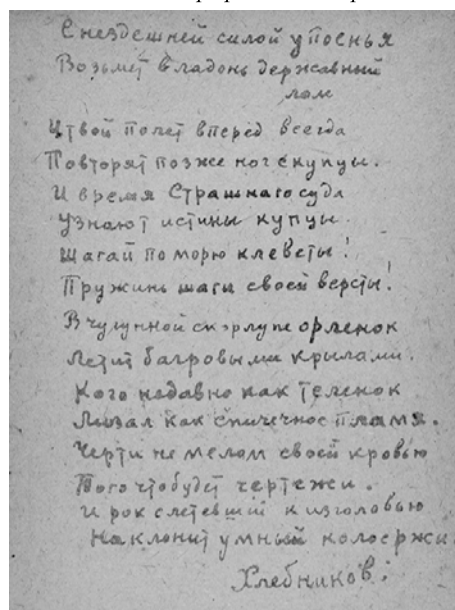 С нездешней силой упоенья
Возьмет в ладонь державный
лом
И твой полет вперед всегда
Повторят позже ног скупцы.
И время Страшнаго суда
Узнают истины купцы.
Шагай по морю клеветы!
Пружинь шаги своей версты!
В чугунной скорлупе орленок
Летит багровыми крылами.
Кого недавно как теленок
Лизал как спичечное пламя.
Черти не мелом своей кровью
Того что будет чертежи.
И рок слетевший к изголовью
Наклонит умный колос ржи
Хлебников